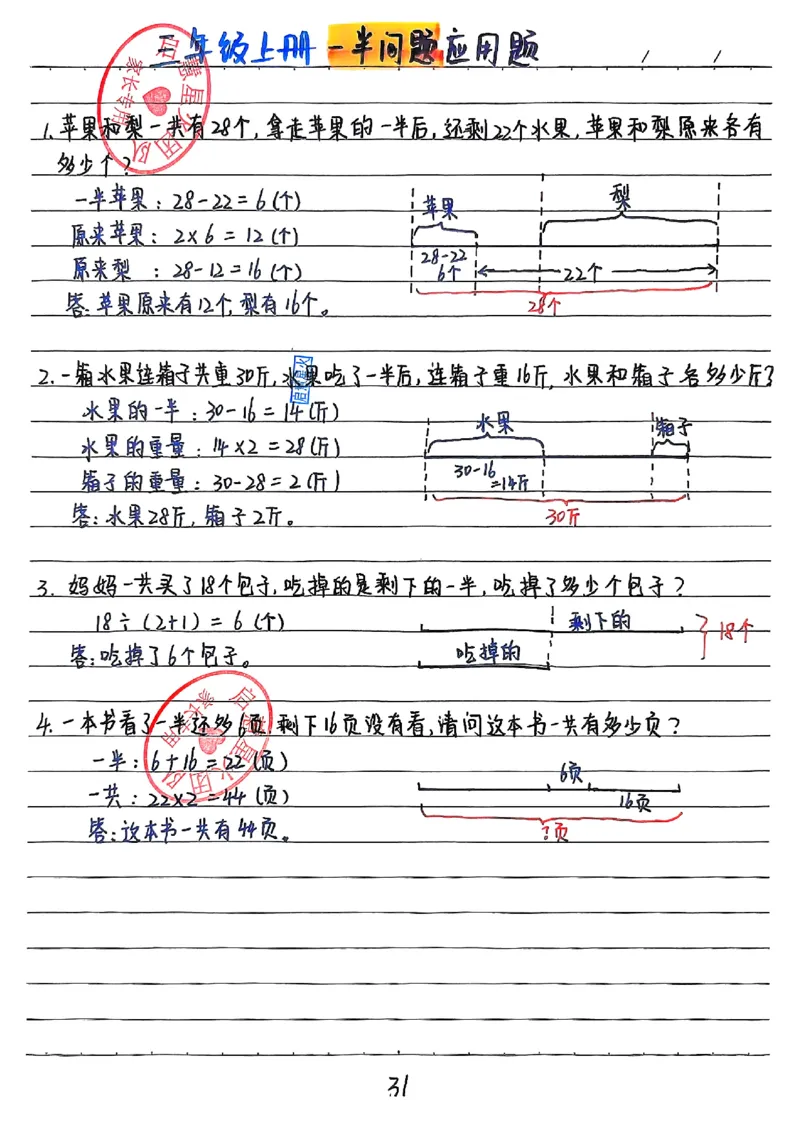 三年级上册 一半问题应用题
1.苹果和梨一共有28个,拿走苹果的一半后,还剩22个水果,苹果和梨原来各有
多少个?
一半苹果:28-22=6(个)
原来苹果:2×6=12(个)
原来梨:28-12=16(个)
答:苹果原来有12个,梨有16个。
苹果
梨
28-22
6个
22个
28个
2.一箱水果连箱子共重30斤,水果吃了一半后,连箱子重16斤,水果和箱子各多少斤?
水果的一半:30-16=14(斤)
水果的重量:14×2=28(斤)
箱子的重量:30-28=2(斤)
答:水果28斤,箱子2斤。
水果
箱子
30-16
=14斤
30斤
3. 妈妈一共买了18个包子,吃掉的是剩下的一半,吃掉了多少个包子?
18÷(2+1)=6(个)
答:吃掉了6个包子。
剩下的
吃掉的
18个
4.一本书看了一半还多6页,剩下16页没有看,请问这本书一共有多少页?
一半:6+16=22(页)
一共:22×2=44(页)
答:这本书一共有44页。
6页
16页
?页
启慧星火团队
家长专用
启慧星火团队
家长专用
31